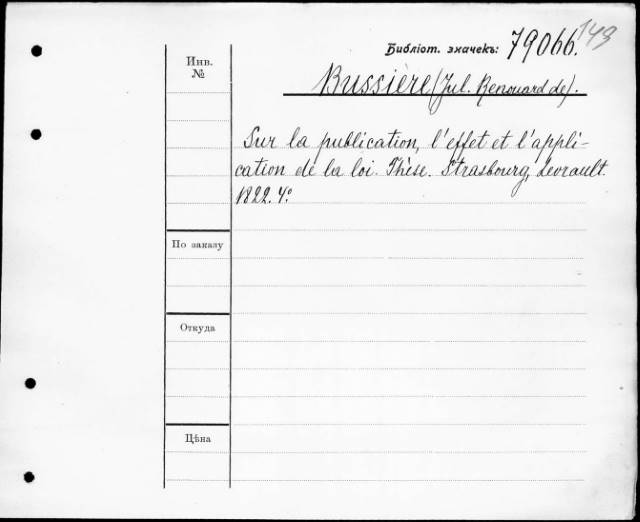 149
Библіот. значекъ: 79066.
Инв.
№
Bussière (Jul. Renouard de).
Sur la publication, l'effet et l'appli-
cation de la loi. Thèse. Strasbourg, Levrault.
1822. 4º
По заказу
Откуда
Цѣна